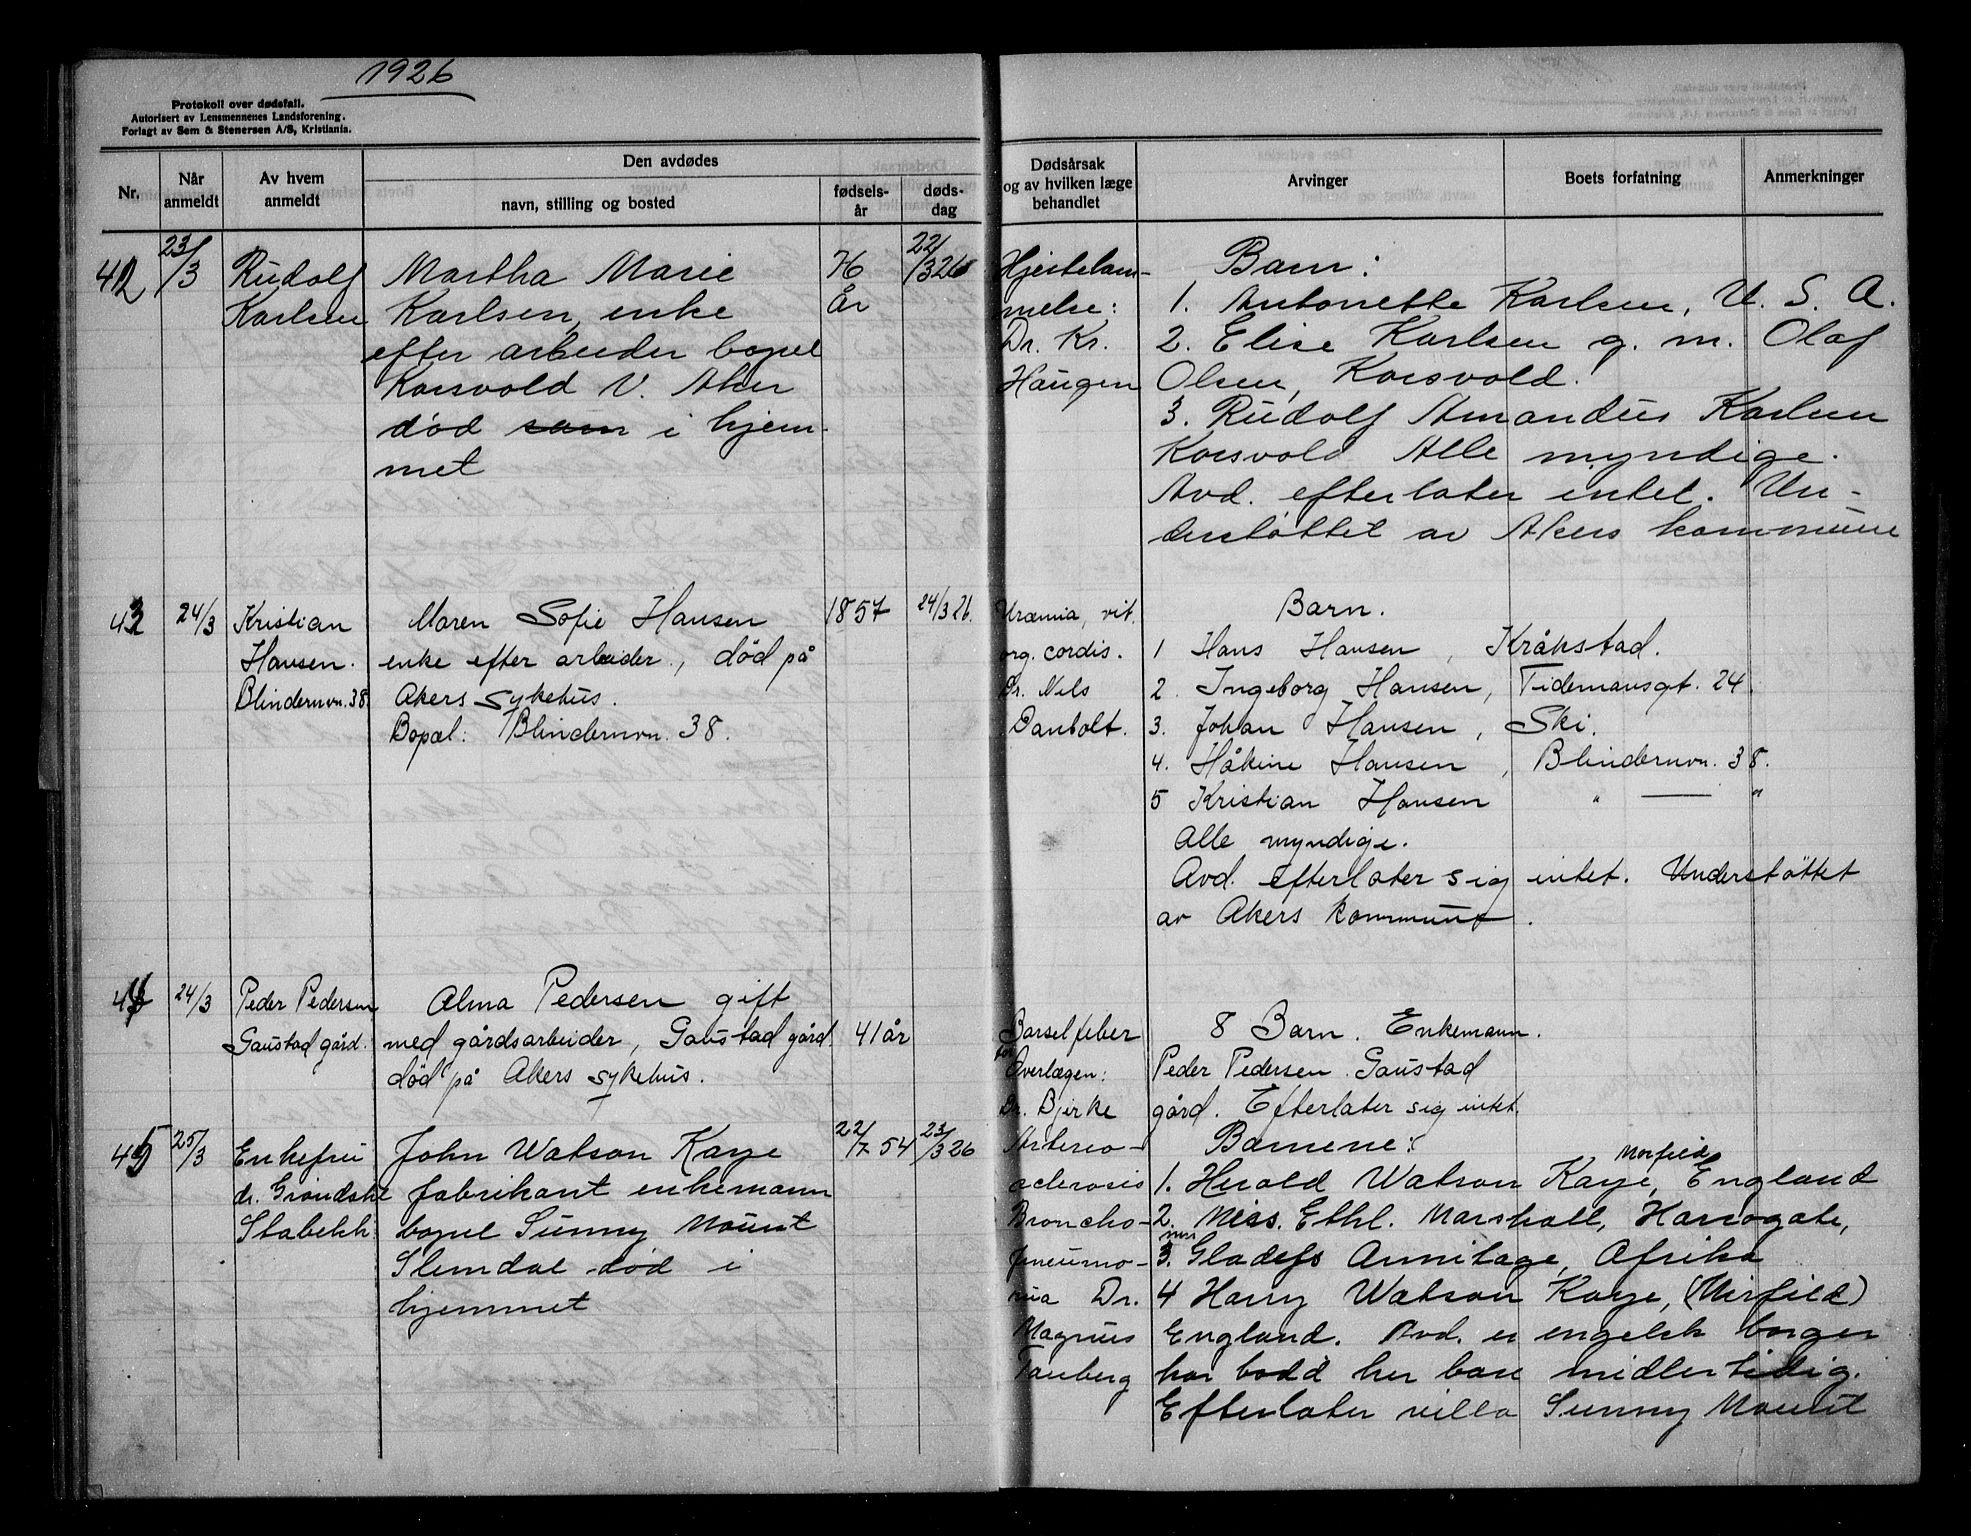 1926
Protokoll over dødsfall.
Autorisert av Lensmennenes Landsforening.
Forlagt av Sem & Stenersen A/S, Kristiania.
Nr.
Når anmeldt
Av hvem anmeldt
Den avdødes
navn, stilling og bosted
fødsels-år
døds-dag
Dødsårsak og av hvilken læge behandlet
Arvinger
Boets forfatning
Anmerkninger
42
23/3
Rudolf
Karlsen
Martha Marie
Karlsen, enke
efter arbeider bopel
Korsvold V. Aker
død som i hjem-
met
År
22/3 26
Hjertelam-
melse:
Dr. Kr.
Haugen
Barn:
1. Antonette Karlsen, U. S. A.
2. Elise Karlsen g. m. Olaf
Olsen, Korsvold.
3. Rudolf Amandus Karlsen
Korsvold Alle myndige.
Avd. efterlater intet. Un-
derstøttet av Akers kommune
43
24/3
Kristian
Hansen.
Blindernvn. 38.
Maren Sofie Hansen
enke efter arbeider, død på
Akers sykehus.
Bopæl: Blindernvn. 38.
1857
24/3 26.
Uræmia, vit.
org. cordis.
Dr. Nils
Danbolt.
Barn.
1 Hans Hansen, Kråkstad.
2. Ingeborg Hansen, Tidemansgt. 24.
3. Johan Hansen, Ski.
4. Håkine Hansen, Blindernvn. 38.
5 Kristian Hansen " — "
Alle myndige.
Avd. efterlater sig intet. Understøttet
av Akers kommune.
44
24/3
Peder Pedersen
Gaustad gård.
Alma Pedersen gift
med gårdsarbeider, Gaustad gård.
død på Akers sykehus.
41 år
Barselfeber
for
Overlægen:
Dr. Bjerke
8 Barn. Enkemann.
Peder Pedersen. Gaustad
gård. Efterlater sig intet.
45
25/3
Enkefru
Stabekk
John Watson Kaye
fabrikant enkemann
bopel Sunny Mount
Slemdal død i
hjemmet
22/7 54
23/3 26
Arterio-
sclerosis
Broncho-
pneumo-
nia Dr.
Magnus
Tanberg
Barnene:
1. Herold Watson Kaye, Morfield England
2. Miss. Ethl. Marshall, Harrogate,
3. Gladefs Armitage, Afrika
4 Harry Watson Kaye, (Mirfild)
England. Avd. er engelsk borger
har bodd her bare midlertidig.
Efterlater villa Sunny Mount